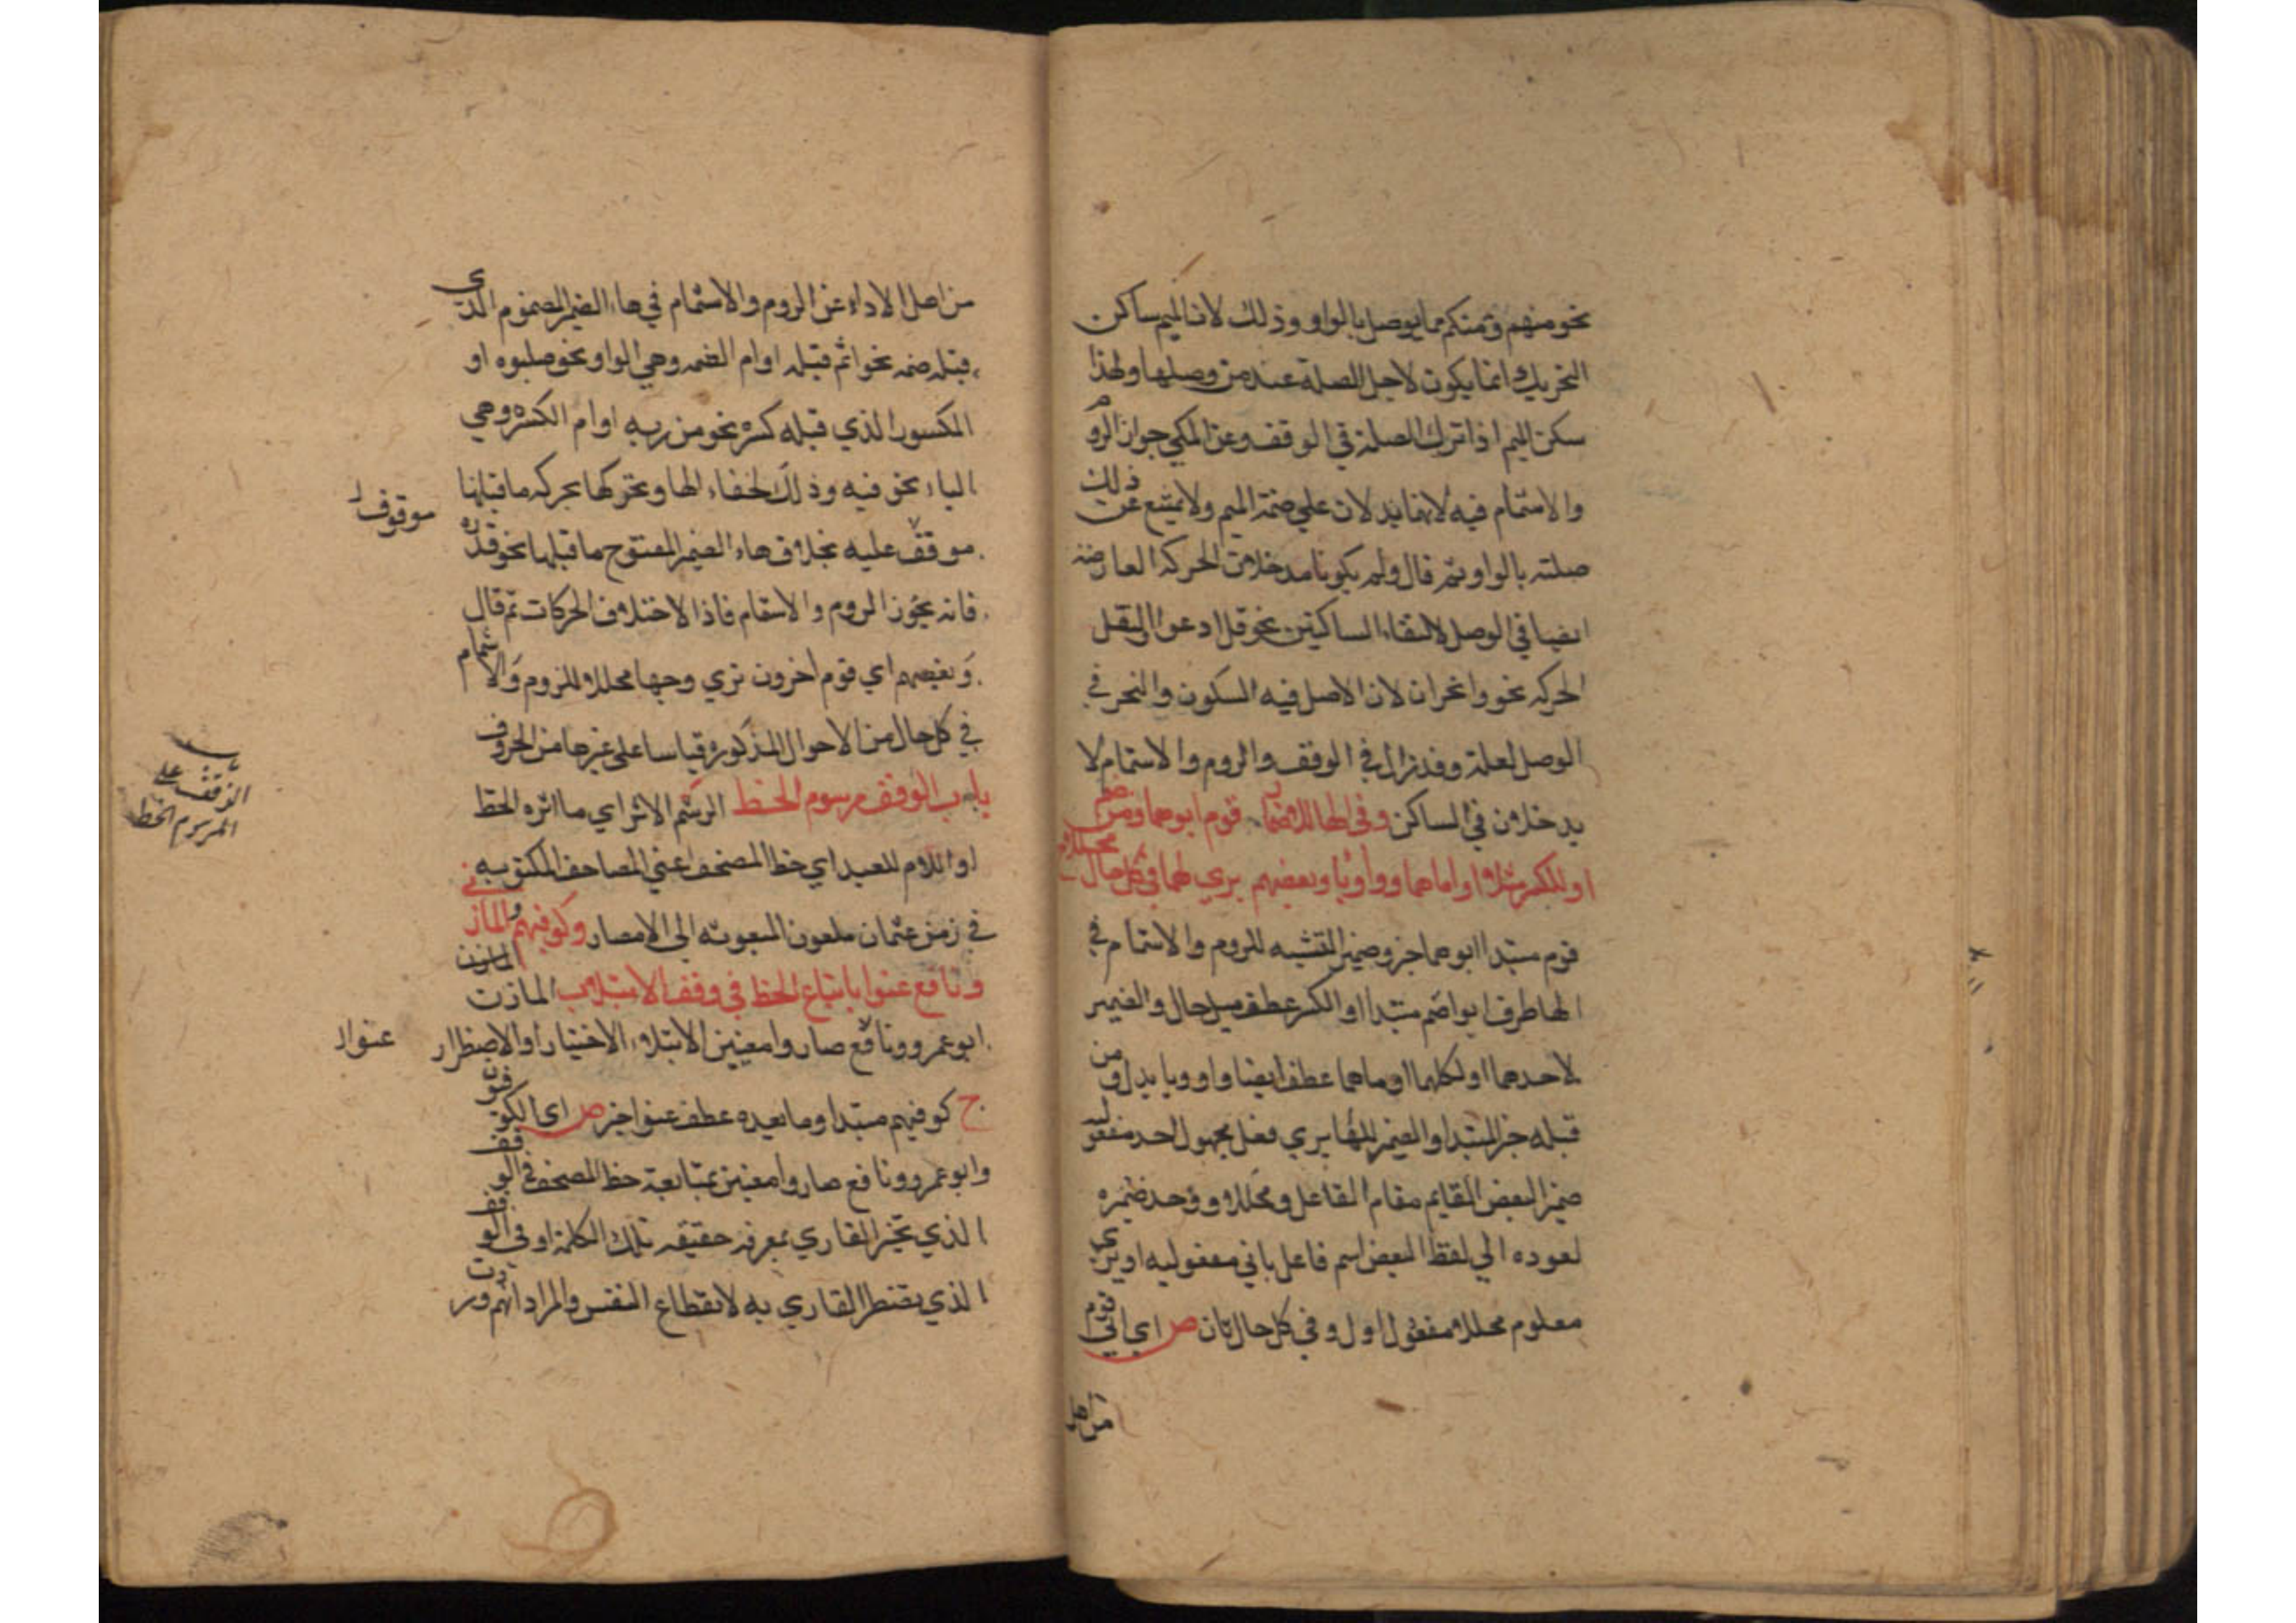 نحو منهم ومنكم مما يوصل بالواو وذلك لان الميم ساكن
التحريك انما يكون لاجل الصلة عند من وصلها ولهذا
سكن الميم اذا ترك الصلة في الوقف وعن المكي جواز الروم
والاشمام فيه لانهما يدلان علي ضمة الميم ولا يمتنع عن ذلك
صلته بالواو ثم قال ولم يكونا مدخلا من الحركة العارضة
ايضا في الوصل لالتقاء الساكنين نحو قل ادعوا النقل
الحركة نحو وانحران لان الاصل فيه السكون والتحر في
الوصل لعلة وقد زال في الوقف والروم والاشمام لا
يدخلان في الساكن وفي الهاء للاضمار قوم ابوهما ومن
او الكسر مثلا او اماهما واو ويا وبعضهم يري لهما في كل حال محللا
قوم مبتدا ابوهما خبر وضمير التثنيه للروم والاشمام في
الها ظرف ابوا ضم مبتدا او الكسر عطف حال والضمير
لاحدهما او لكليهما اوماهما عطف ايضا واو ويا بدل ومن
قبله خبر المبتدا والضمير للها يري فعل مجهول احد مفعوليه
ضمير البعض القايم مقام الفاعل ومحللا ووحد ضميره
لعوده الي لفظ البعض اسم فاعل باني مفعوليه او يري
معلوم محللا مفعول اول وفي كل حال ثان ص اي ابي قوم
من اهل
من اهل الاداء عن الروم والاشمام في هاء الضمير المضموم الذي
قبله ضمه نحو اثم قبله او ام الضمه وهي الواو نحو صلبوه او
المكسور الذي قبله كسره نحو من ربه او ام الكسره وهي
الياء نحو فيه وذلك لخفاء الها وتحركها بحركه ما قبلها
موقف عليه بخلاف هاء الضمير المفتوح ما قبلها نحو قدره
موقوف
فانه يجوز الروم والاشمام فاذا لاختلاف الحركات ثم قال
وبعضهم اي قوم اخرون تري وجها محللا للروم والاشمام
في كل حال من الاحوال المذكوره قياسا على غيرها من الحروف
باب الوقف مرسوم الخط الرسم الاثر اي ما اثره الخط
باب الوقف على المرسوم الخط
او اللام للعهد اي خط المصحف اعني المصاحف المكتوبه
في زمن عثمان المبعوثه الي الامصار وكوفيهم والمازني
ونافع عنوا باتباع الخط في وقف الابتلا المازن
ابو عمرو ونافع صاروا معنيين الابتلاء الاختيار او الاضطرار
عنوا
ح كوفيهم مبتدا وما بعده عطف عنوا خبر ص اي الكوفيون
وابو عمرو ونافع صاروا معنيين بمتابعة خط المصحف في الوقف
الذي يختبر القاري بمعرفه حقيقه تلك الكلمة او في الوقف
الذي يضطر القاري به لانقطاع النفس والمراد انهم وردت